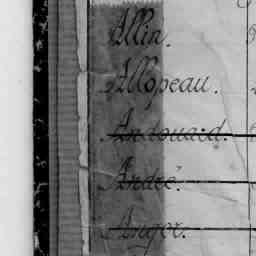 Allin.
Allopeau.
Andouard.
André.
Anger.